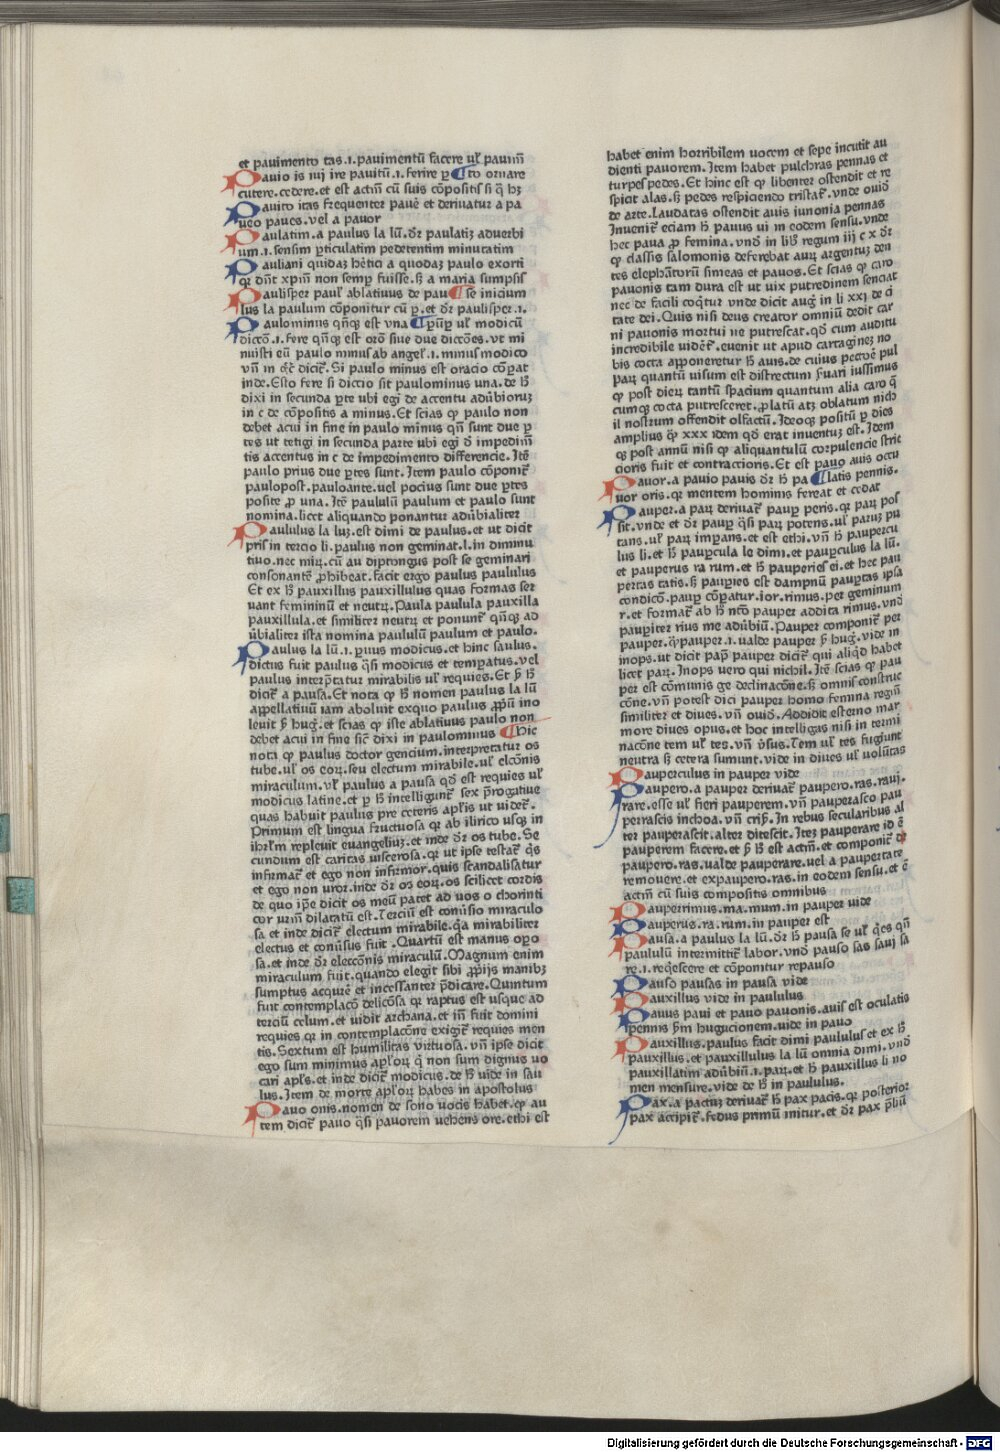 et pavimento tas.i.pauimentũ facere ul̃ pauim̃
Pauio is iuj ire pauitũ.i.ferire ꝑ ¶ to ornare
cutere.cedere.et est actiṽ cũ suis cõpositis si q̃ hʒ
Pauito itas frequenter pavẽ et deriuatur a pa
veo paues.vel a pauor
Paulatim.a paulus la lũ.dr̃ paulatiʒ aduerbi
um.i.sensim ꝑticulatim pedetentim minutatim
Pauliani quidaʒ hẽtici a quodaʒ paulo exorti
qꝛ dñt xpm̃ non semꝑ fuisse.sʒ a maria sumpsis
Paulisper paul̃ ablatiuus de pau ¶ se inicium
lus la paulum cõponitur cũ ꝑ.et dr̃ paulisper.i.
Paulominus qñqʒ est vna ¶ ꝑuꝑ ul̃ modicũ
dictõ.i.fere qñqʒ est orõ siue due dictões.ut mi
nuisti eũ paulo minus ab angel̃.i.minus modico
inde.Esto fere si dictio sit paulominus una.de hͦ
dixi in secunda ꝑte ubi egi de accentu adũbioruʒ
in c de cõpositis a minus.Et scias qꝫ paulo non
debet acui in fine in paulo minus qñ sunt due ꝑ
tes ut tetigi in secunda parte ubi egi ď impedim̃
tis accentus in c de impedimento differencie.Itẽ
paulo prius due ꝑtes sunt.Item paulo cõponit̃
paulopost.pauloante.uel pocius sunt due ꝑtes
posite ꝓ una.Itẽ paululũ paulum et paulo sunt
nomina.licet aliquando ponantur adũbialiter
Paululus la luʒ.est dimi de paulus.et ut dicit
pris in tercio li.paulus non geminat.l.in diminu
tiuo.nec miꝝ.cũ au diptongus post se geminari
consonantẽ ꝓhibeat.facit ergo paulus paululus
Et ex hͦ pauxillus pauxillulus quas formas ser
uant femininũ et neutꝝ.Paula paulula pauxilla
pauxillula.et similiter neutꝝ et ponunt̃ qñqʒ ad
ũbialiter ista nomina paululũ paulum et paulo.
Paulus la lũ.i.ꝑuus modicus.et hinc saulus.
dictus fuit paulus q̃si modicus et temꝑatus.vel
paulus interp̃tatur mirabilis ul̃ requies.Et ẜm hͦ
dicit̃ a pausa.Et nota qꝫ hͦ nomen paulus la lũ
appellatiuũ iam aboluit exquo paulus ꝓpriũ ino
leuit ẜm hug̃.et scias qꝫ iste ablatiuus paulo non
debet acui in fine sic̃ dixi in paulominus ¶ Hic
nota qꝫ paulus doctor gencium.interpretatur os
tube.ul̃ os eoꝝ.seu electum mirabile.ul̃ elcõnis
miraculum.ul̃ paulus a pausa qď est requies ul̃
modicus latine.et ꝑ hͦ intelligunt̃ sex p̃rogatiue
quas habuit paulus pre ceteris apl̃is ut uidet̃.
Primum est lingua fructuosa qꝛ ab ilirico usqʒ in
ihrl̃m repleuit euangeliuʒ.et inde dr̃ os tube.Se
cundum est caritas uiscerosa.qꝛ ut ipse testat̃ q̃s
infirmat̃ et ego non infirmor.quis scandalisatur
et ego non uror.inde dr̃ os eoꝝ.os scilicet cordis
de quo ip̃e dicit os meũ patet ad uos o chorinti
cor ur̃m dilatatũ est.Terciũ est conũsio miraculo
sa et inde dicit̃ electum mirabile.q̃a mirabiliter
electus et conũsus fuit.Quartũ est manus oꝑo
sa.et inde dr̃ elecõnis miraculũ.Magnum enim
miraculum fuit.quando elegit sibi ꝓprijs manibʒ
sumptus acquir̃e et incessanter p̃dicare.Quintum
fuit contemplacõ deliciosa qꝛ raptus est usque ad
terciũ celum.et uidit archana.et iñ fuit domini
requies qꝛ in contemplacõne exigit̃ requies men
tis.Sextum est humilitas virtuosa.vñ ipse dicit
ego sum minimus apl'oꝝ q̃ non sum dignus uo
cari apl̃s.et inde dicit̃ modicus.de hͦ uide in sau
lus.Item de morte apl'oꝝ habes in apostolus
Pauo onis.nomen de sono uocis habet.qꝫ au
tem dicit̃ pauo q̃si pauorem uehens ore.ethi est
habet enim horribilem uocem et sepe incutit au
dienti pauorem.Item habet pulchras pennas et
turpes pedes.Et hinc est qꝫ libenter ostendit et re
spicit alas.sʒ pedes respiciendo tristat̃.vnde ouiď
de arte.Laudatas ostendit auis iunonia pennas
Inuenit̃ eciam hͦ pauus ui in eodem sensu.vnde
hec paua ꝓ femina.vnď in libͦ regum iij c x dr̃
qꝫ classis salomonis deferebat auꝝ argentuʒ den
tes elephãtorũ simeas et pauos.Et scias qꝫ caro
pauonis tam dura est ut uix putredinem senciat
nec de facili coq̃tur vnde dicit aug̃ in li xxj de ci
tate dei.Quis nisi deus creator omniũ dedit car
ni pauonis mortui ne putrescat.qď cum auditu
incredibile uidẽt̃.euenit ut apud cartaginẽ no
bis cocta apponeretur hͦ auis.de cuius pectoẽ pul
paꝝ quantũ uisum est distrectum ẜuari iussimus
qꝫ post dieꝝ tantũ spacium quantum alia caro q̃
cumqʒ cocta putresceret.ꝓlatũ atʒ oblatum nich
il nostrum offendit olfactũ.Ideoqʒ positũ ꝑ dies
amplius qꝫ xxx idem qď erat inuentuʒ est.Idem
qʒ post annũ nisi qꝫ aliquantulũ corpulencie stric
cioris fuit et contraccioris.Et est pauo auis occu
Pauor.a pauio pauis dr̃ hͦ pa ¶ latis pennis.
uor oris.qꝛ mentem hominis fereat et cedat
Pauper.a paꝝ deriuat̃ pauꝑ peris.qꝛ paꝝ pos
sit.vnde et dr̃ pauꝑ q̃si paꝝ potens.ul̃ paruʒ pu
tans.ul̃ paꝝ imꝑans.et est ethi.vñ hͦ paupercu
lus li.et hͦ paupercula le dimi.et pauꝑculus la lũ.
et pauperus ra rum.et hͦ pauperies ei.et hec pau
pertas tatis.sʒ pauꝑies est dampnũ pauꝑtas ipsa
condicõ.pauꝑ cõꝑatur.ior.rimus.per geminum
r.et format̃ ab hͦ nt̃o pauper addita rimus.vnď
pauꝑiter rius me adũbiũ.Pauper componit̃ per
pauper.q̃ꝑpauper.i.ualde pauper ẜm hug̃.vide in
inops.ut dicit pap̃ pauper dicit̃ qui aliq̃d habet
licet paꝝ.Inops vero qui nichil.Itẽ scias qꝫ pau
per est cõmunis ge declinacõne.sʒ omnis construc
cõne.vñ potest dici pauper homo femina regnũ
similiter et diues.vñ ouiď.Addidit esterno mar
more diues opus.et hoc intelligas nisi in termi
nacõne tem ul̃ tes.vñ ṽsus.Tem ul̃ tes fugiunt
neutra sʒ cetera sumunt.vide in diues ul̃ uolũtas
Pauperculus in pauper vide
Paupero.a pauper deriuat̃ paupero.ras.rauj.
rare.esse ul̃ fieri pauperem.vñ pauperasco pau
perrascis inchoa.vñ crisͬ.In rebus secularibus al
ter pauperascit.alter ditescit.Iteʒ pauperare id ẽ
pauperem facere.et ẜm hͦ est actiṽ.et componit̃ ď
paupero.ras.ualde pauperare.uel a paupertate
remouere.et expaupero.ras.in eodem sensu.et ẽ
actiṽ cũ suis compositis omnibus
Pauperrimus.ma.mum.in pauper uide
Pauperus.ra.rum.in pauper est
Pausa.a paulus la lũ.dr̃ hͦ pausa se ul̃ q̃es qñ
paululũ intermittit̃ labor.vnď pauso sas sauj sa
re.i.req̃escere et cõponitur repauso
Pauso pausas in pausa vide
Pauxillus vide in paululus
Pauus paui et pauo pauonis.auis est oculatis
pennis ẜm hugucionem.uide in pauo
Pauxillus.paulus facit dimi paululus et ex hͦ
pauxillus.et pauxillulus la lũ omnia dimi.vnď
pauxillatim adũbiũ.i.paꝝ.et hͦ pauxillus li no
men mensure.vide de hͦ in paululus.
Pax.a pactuʒ deriuat̃ hͦ pax pacis.qꝛ posterior
pax accipit̃.fedus primũ initur.et dr̃ pax p̃liũ
Digitalisierung gefördert durch die Deutsche Forschungsgemeinschaft - DFG